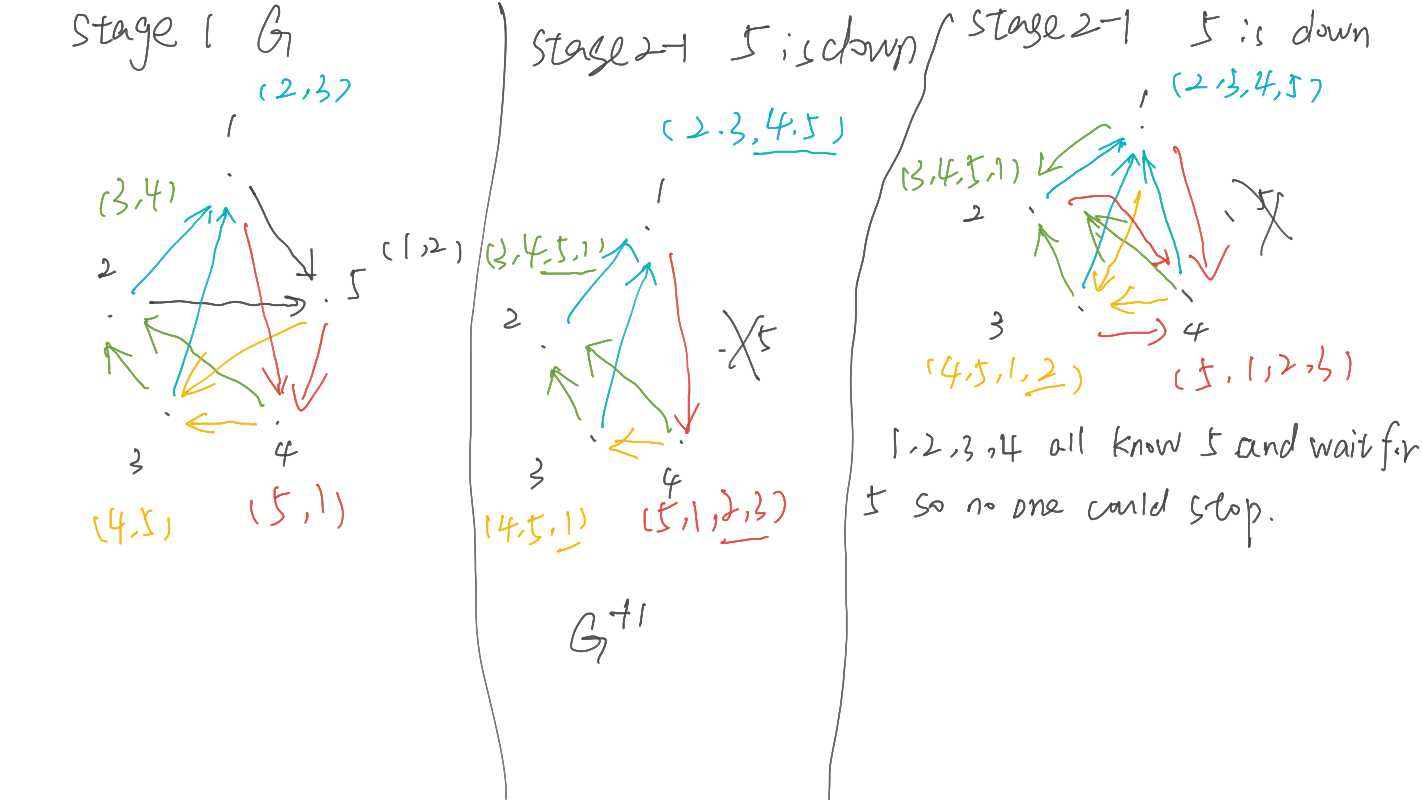 stage 1 G
(2,3)
1
(3,4)
2
(1,2)
5
3
4
(4,5)
(5,1)
stage2-1 5 is down
(2.3,4.5)
1
(3,4,5,1)
2
5
3
4
(4,5,1)
(5,1,2,3)
G+1
stage2-1 5 is down
(2,3,4,5)
1
(3,4,5,1)
2
5
3
4
(4,5,1,2)
(5,1,2,3)
1,2,3,4 all know 5 and wait for
5 so no one could stop.